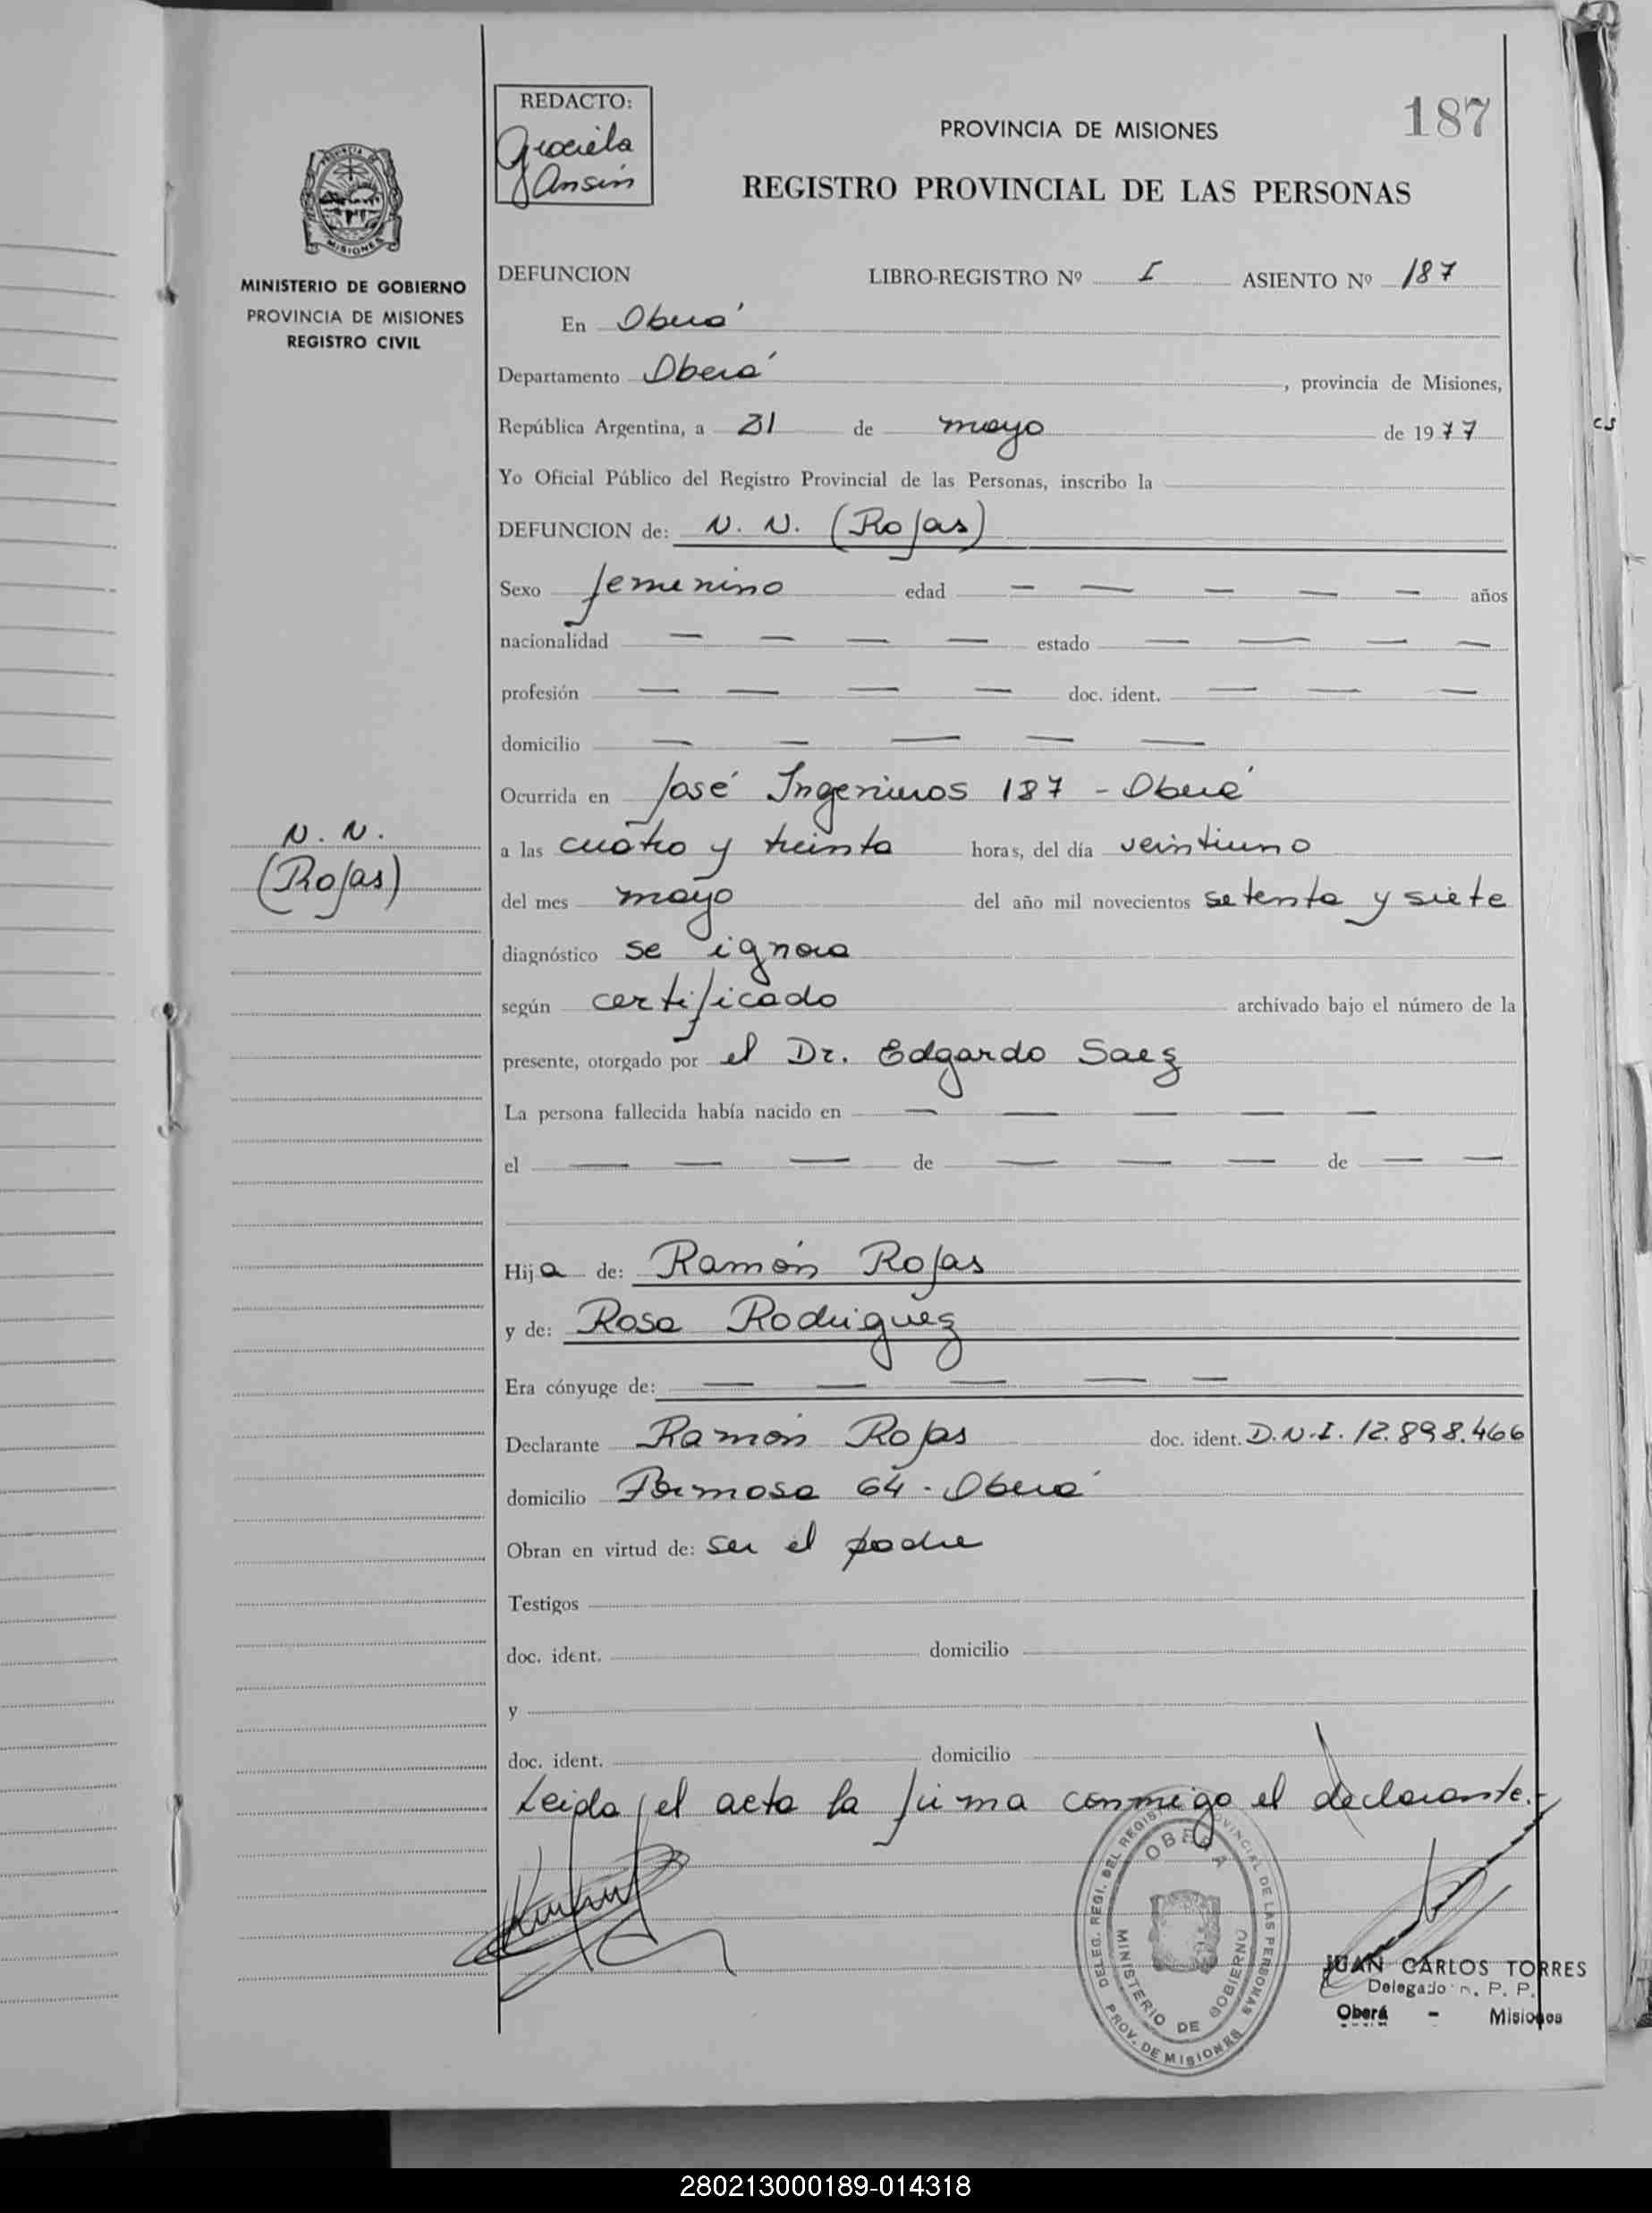 REDACTO:
Graciela
Ansin
187
PROVINCIA DE MISIONES
REGISTRO PROVINCIAL DE LAS PERSONAS
MISIONES
MINISTERIO DE GOBIERNO
PROVINCIA DE MISIONES
REGISTRO CIVIL
DEFUNCION LIBRO-REGISTRO Nº I ASIENTO Nº 187
En Oberá
Departamento Oberá, provincia de Misiones,
República Argentina, a 31 de mayo de 1977
Yo Oficial Público del Registro Provincial de las Personas, inscribo la
DEFUNCION de: N. N. (Rojas)
Sexo femenino edad — — — — — años
nacionalidad — — — — estado — — — —
profesión — — — — doc. ident. — — —
domicilio — — — — —
Ocurrida en José Ingenieros 187 - Oberá
a las cuatro y treinta horas, del día veintiuno
del mes mayo del año mil novecientos setenta y siete
diagnóstico se ignora
según certificado archivado bajo el número de la
presente, otorgado por el Dr. Edgardo Saez
La persona fallecida había nacido en — — — — —
el — — — de — — — de — —
Hija de: Ramón Rojas
y de: Rosa Rodriguez
Era cónyuge de: — — — — —
Declarante Ramón Rojas doc. ident. D.N.I. 12.898.466
domicilio Formosa 64 - Oberá
Obran en virtud de: ser el padre
Testigos
doc. ident. domicilio
y
doc. ident. domicilio
Leida el acta la firma conmigo el declarante.-
N. N.
(Rojas)
DELEG. REGI. DEL REGIS PROVINCIAL DE LAS PERSONAS
OBERA
MINISTERIO DE GOBIERNO
PROV. DE MISIONES
JUAN CARLOS TORRES
Delegado P. P.
Oberá - Misiones
280213000189-014318